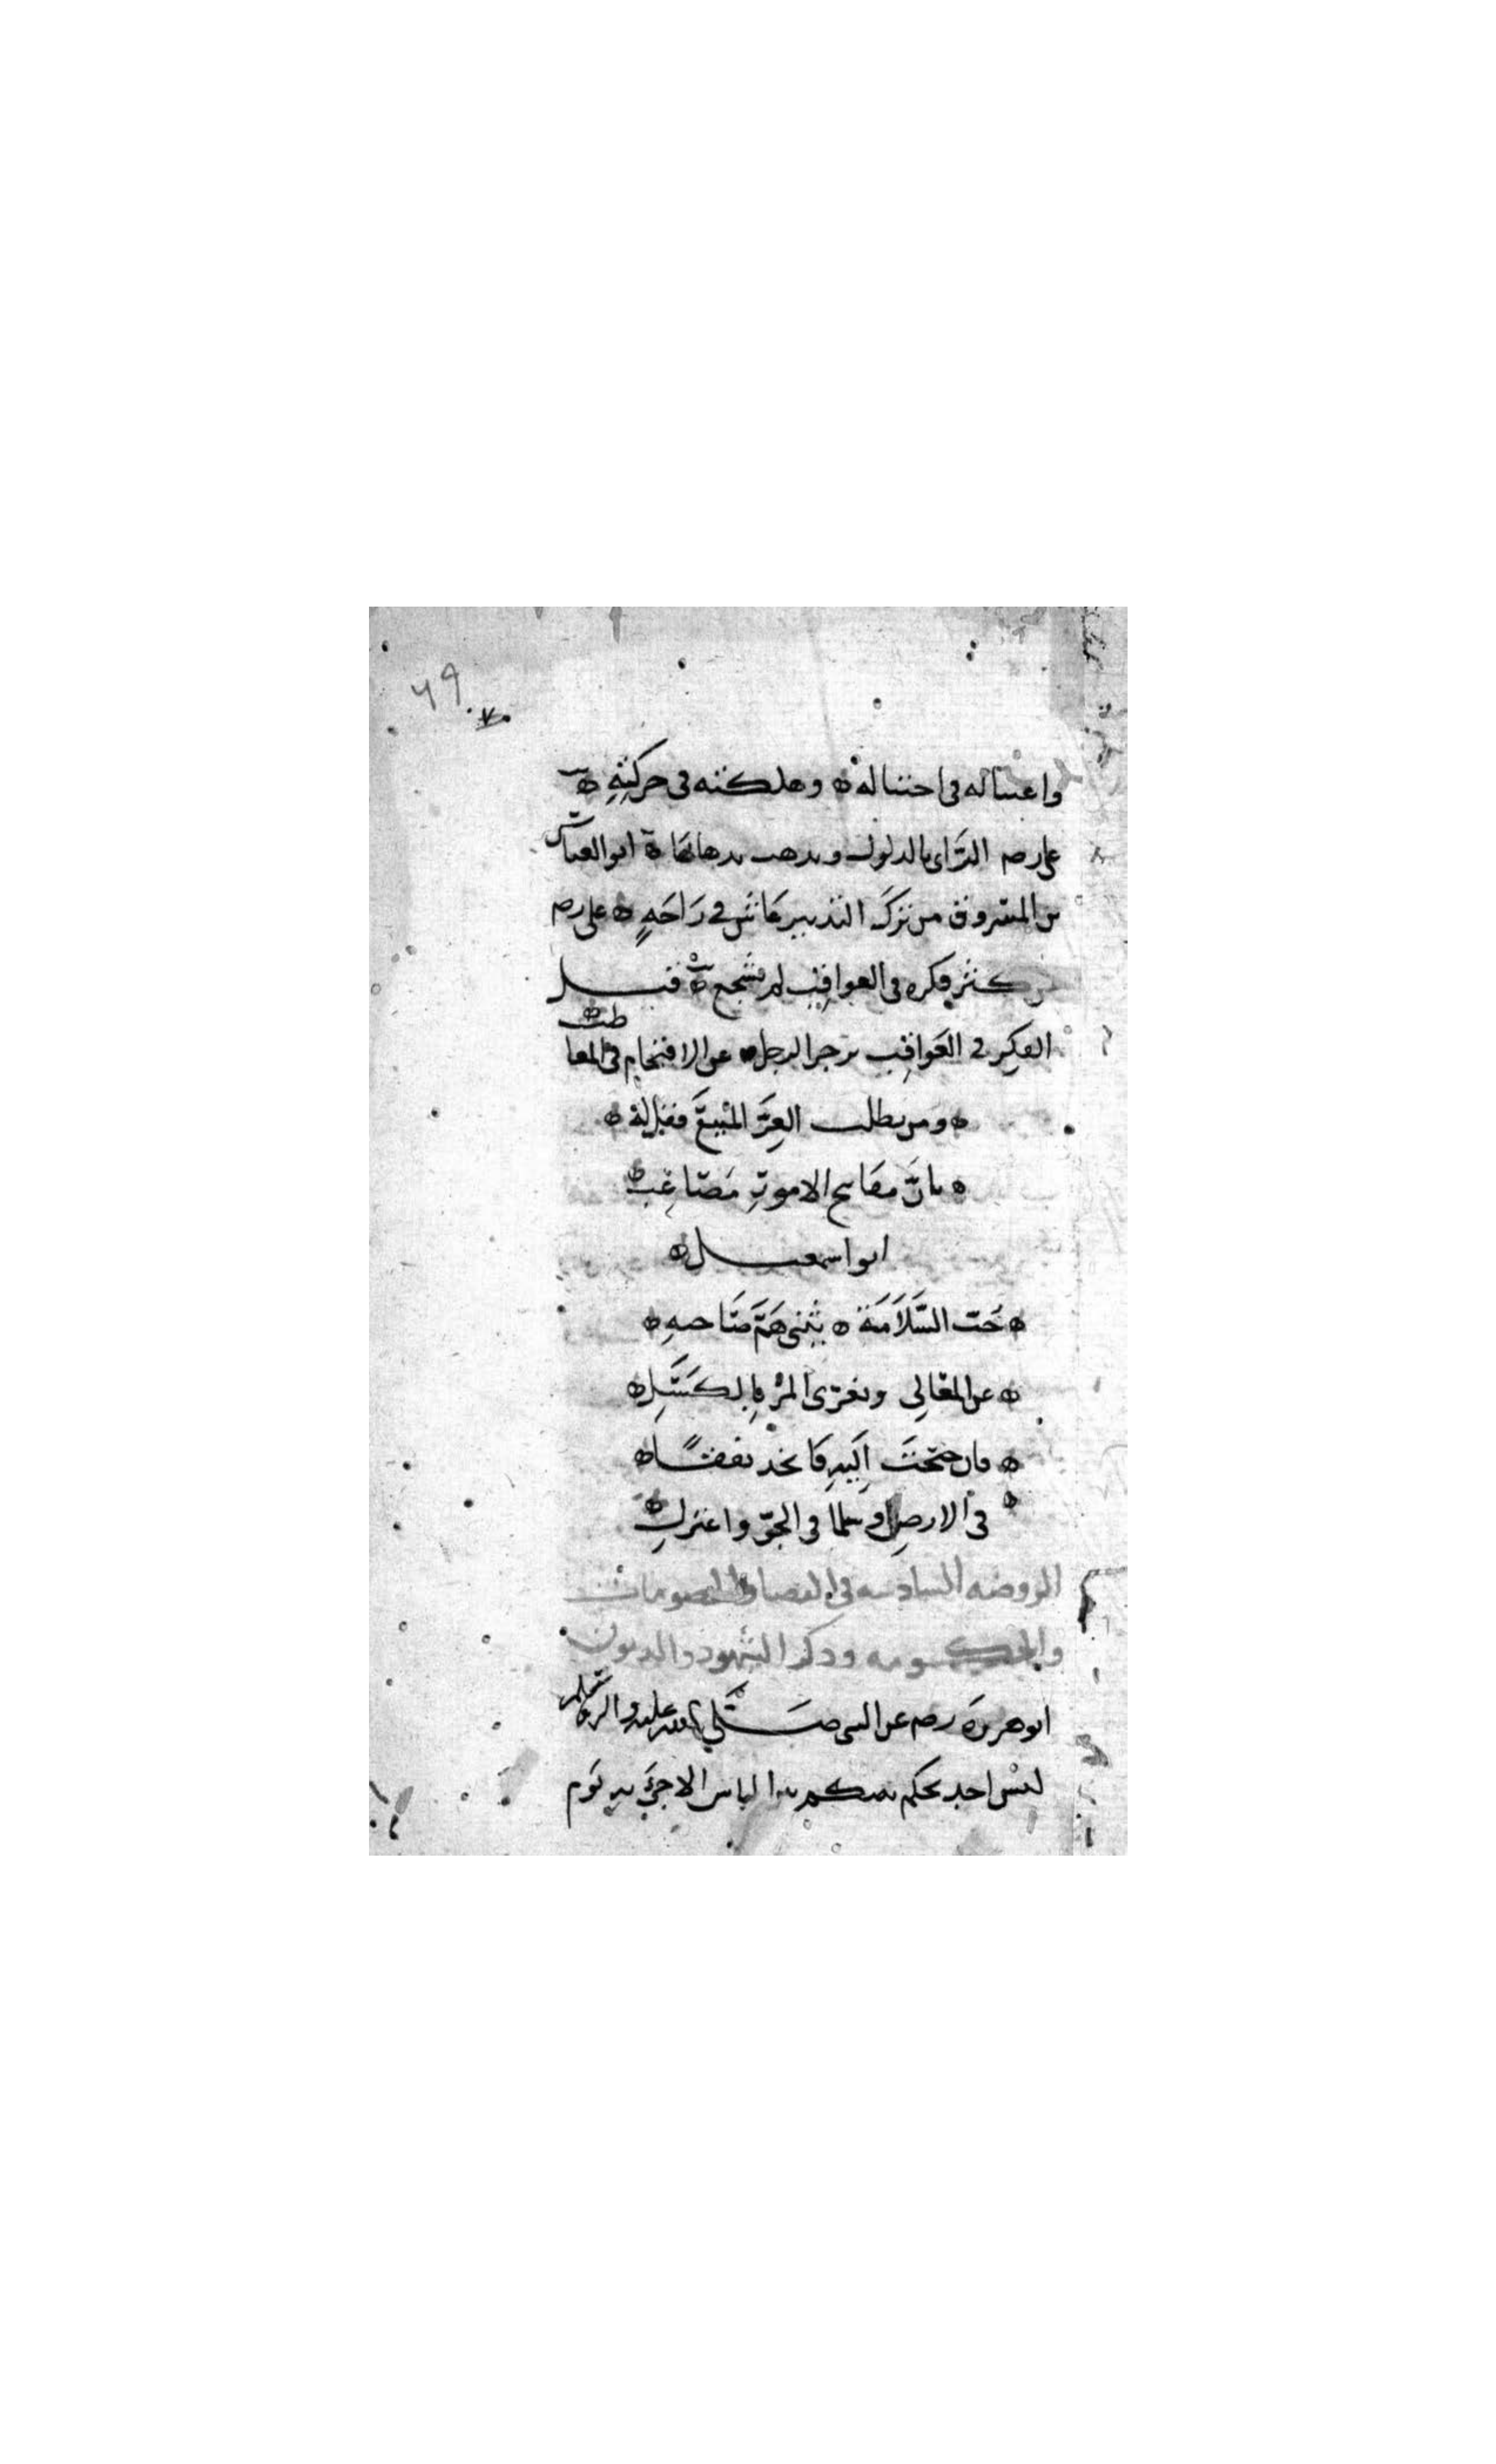 ٦٩
٧٠
واغتياله في احتياله ه وهلكته في حركته ه
علي رضه الرَّأي بالدلول ويذهب بذهابها ه ابو العباس
بن المسروق من تركَ التدبير عَاش في رَاحَةٍ ه علي رضه
من كثر فكره في العواقب لم يشجع ه قيل
الفكر في العَواقِب يزجر الرجل عن الاقتحام في المعاطب ه
ه ومن يطلب العِزَّ المنيعَ فقل له ه
ه بانّ مفاتيح الامورِ مَصَاعب ه
ابو اسمعيل ه
ه حُبّ السَّلَامَة ه يثني هَمَّ صَاحبهِ ه
ه عن المعَالِي ويغرّى المرْءَ بالكسَلِ ه
ه فان جنحتَ اليهِ فاتخذ نفقاً ه
ه في الارضِ او سلما في الجوّ واعتزلِ ه
الروضه السادسه في القضا والخصومات
والحكومه وذكر الشهود والديون
ابو هريرة رضه عن النبي صَلَّي الله عليه واله وسلم
ليسَ احد يحكم بين الناس الا جيَ به يَوم